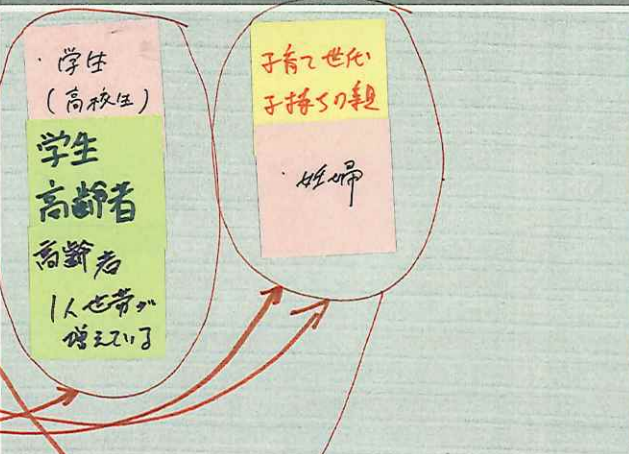 ・学生
(高校生)
学生
高齢者
高齢者
1人世帯が
増えている
子育て世代
子持ちの親
・妊婦